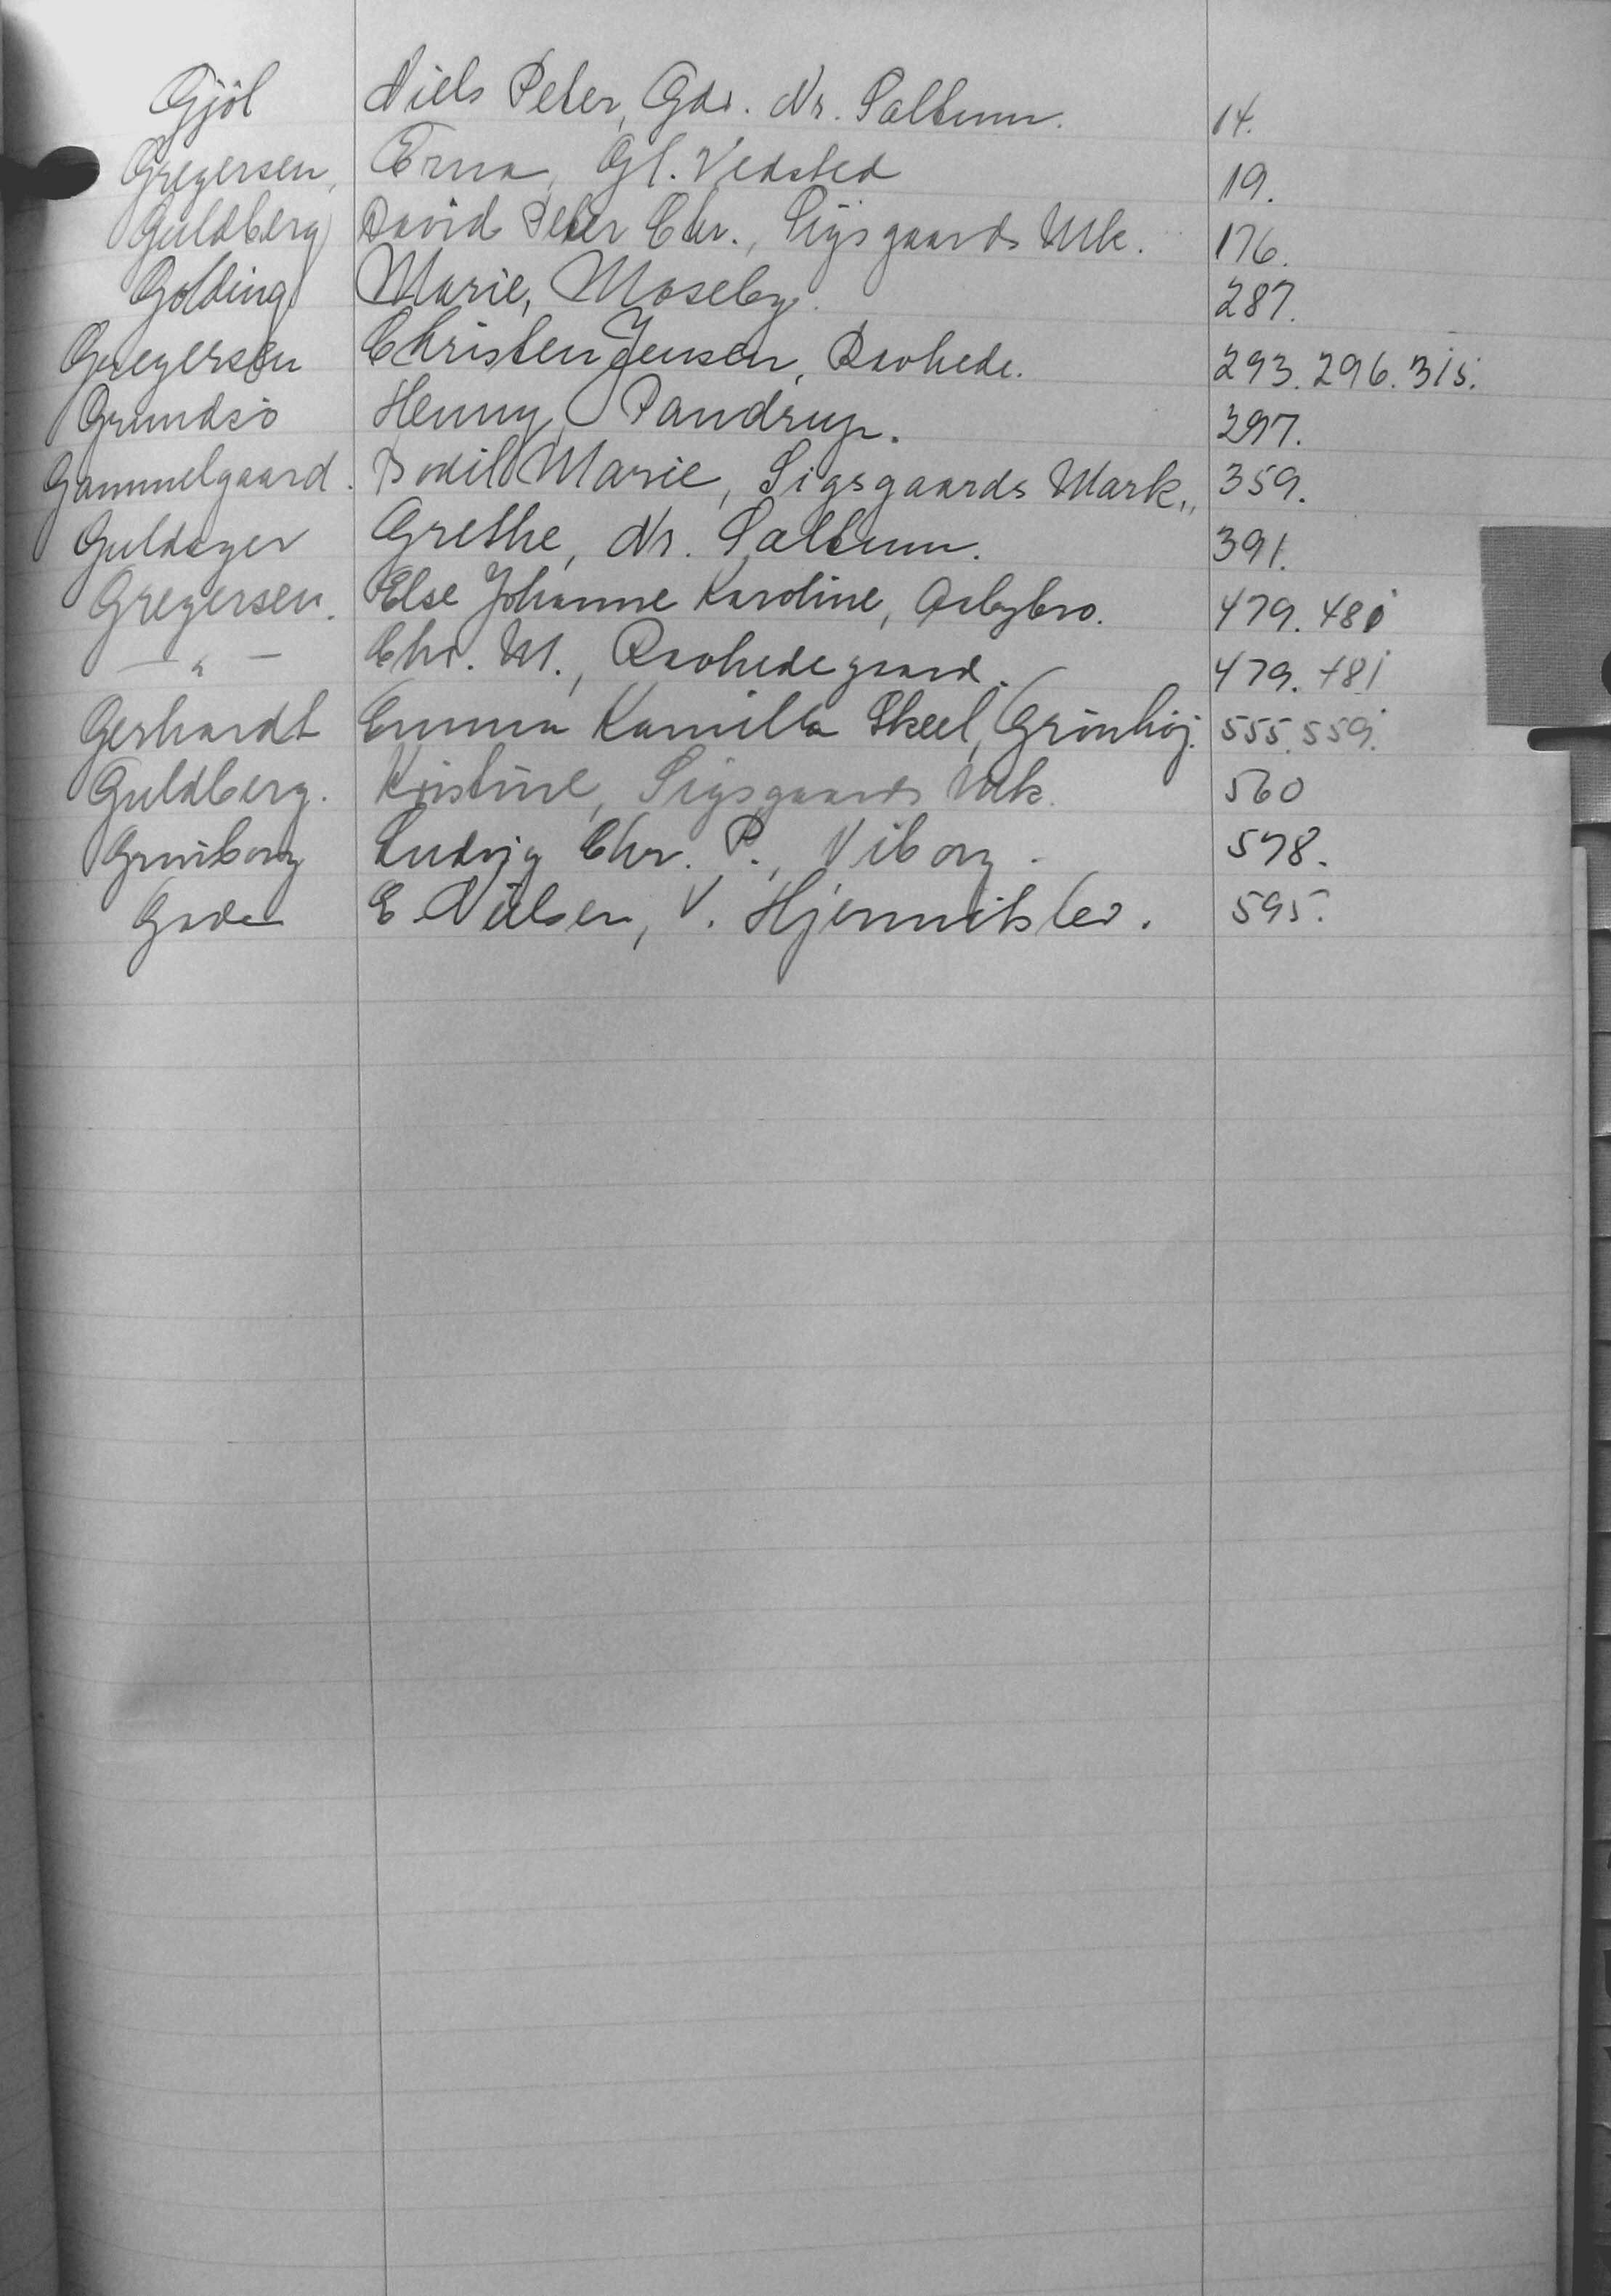 Gjöl Niels Peter, Gdr. Nr. Saltum. 14.
Gregersen, Erna, Gl. Vedsted 19.
Guldberg David Peter Chr., Sigsgaards Mk. 176.
Golding Marie, Moseby. 287.
Gregersen Christen Jensen, Ravhede. 293. 296. 315.
Grundsö Henny, Pandrup. 297.
Gammelgaard. Bodil Marie, Sigsgaards Mark., 359.
Guldager Grethe, Nr. Saltum. 391.
Gregersen. Else Johanne Karoline, Aabybro. 479. 481
— " — Chr. M., Ravhedegaard. 479. 481
Gerhardt Emma Kamilla Skeel, Grönhöj. 555. 559.
Guldberg. Kristine, Sigsgaards Mk. 560
Grönborg Ludvig Chr. P., Viborg. 578.
Gade E Nielsen, V. Hjermitslev. 595.